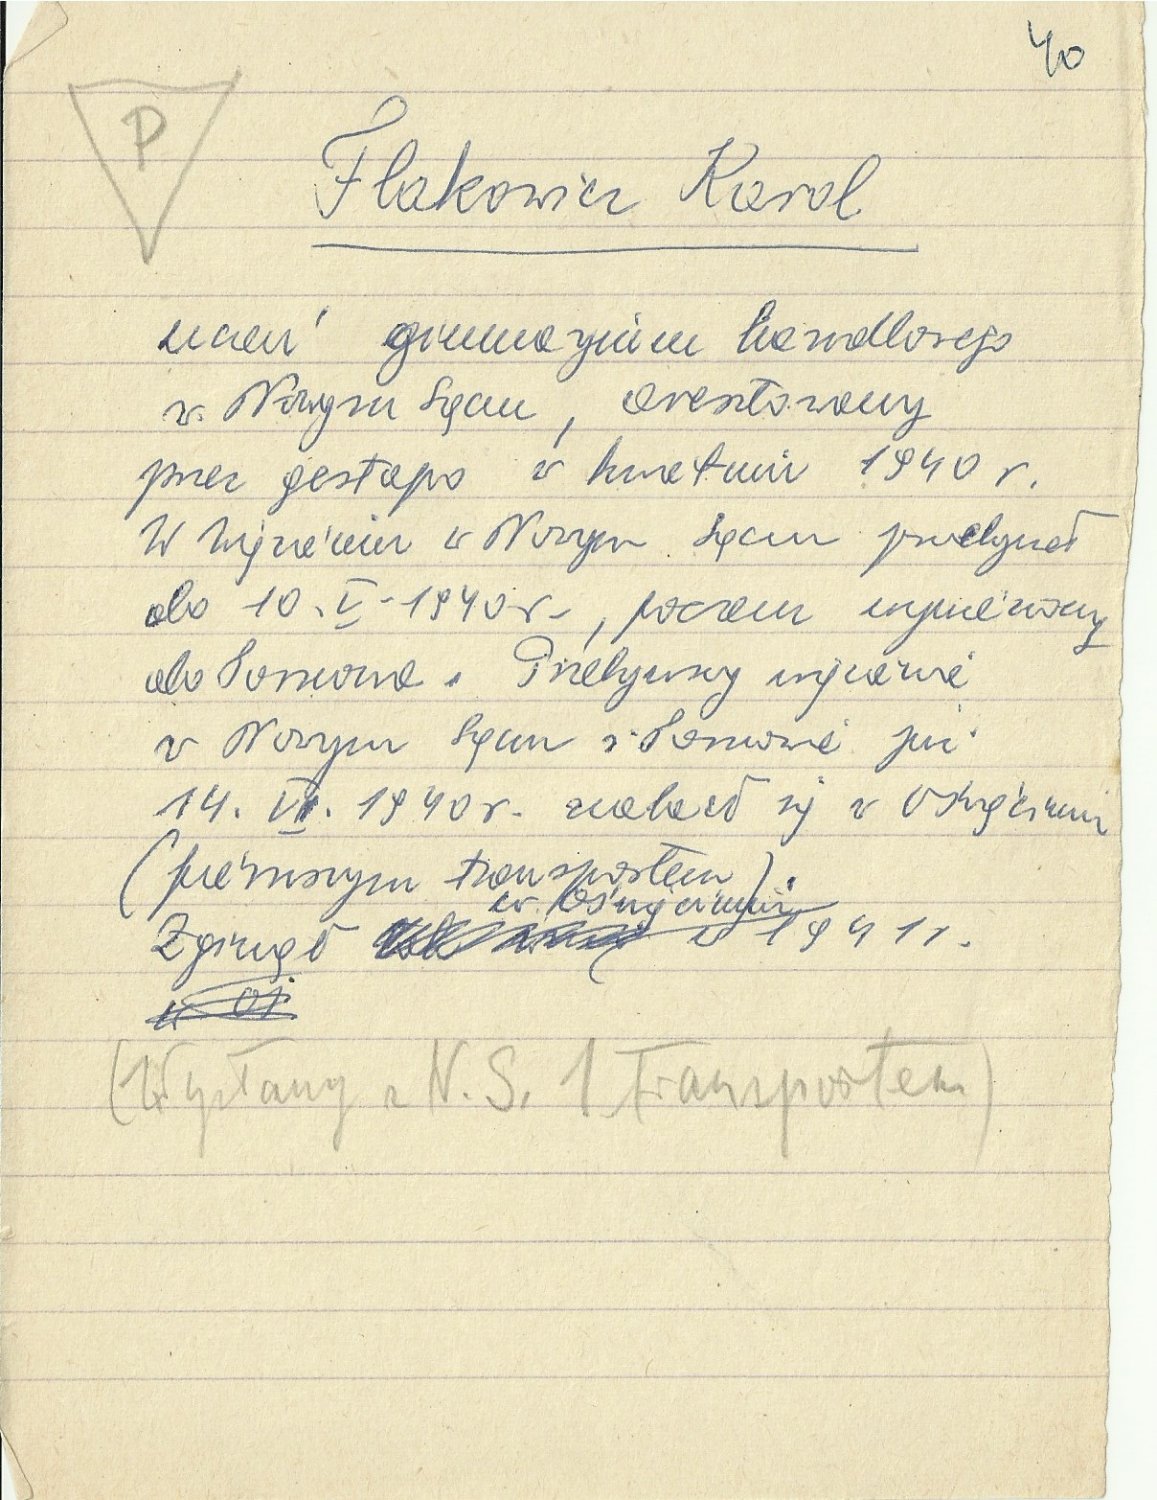 40
P
Flakowicz Karol
uczeń gimnazjum handlowego
w Nowym Sączu, aresztowany
przez gestapo w kwietniu 1940 r.
W więzieniu w Nowym Sączu przebywał
do 10. V. 1940 r., poczem wywieziony
do Tarnowa. Przebywszy więzienie
w Nowym Sączu i Tarnowie już
14. VI. 1940 r. znalazł się w Oświęcimiu
(pierwszym transportem).
w Oświęcimiu
Zginął w 1941 r.
w Oś
(Wysłany z N. S. 1 transportem)